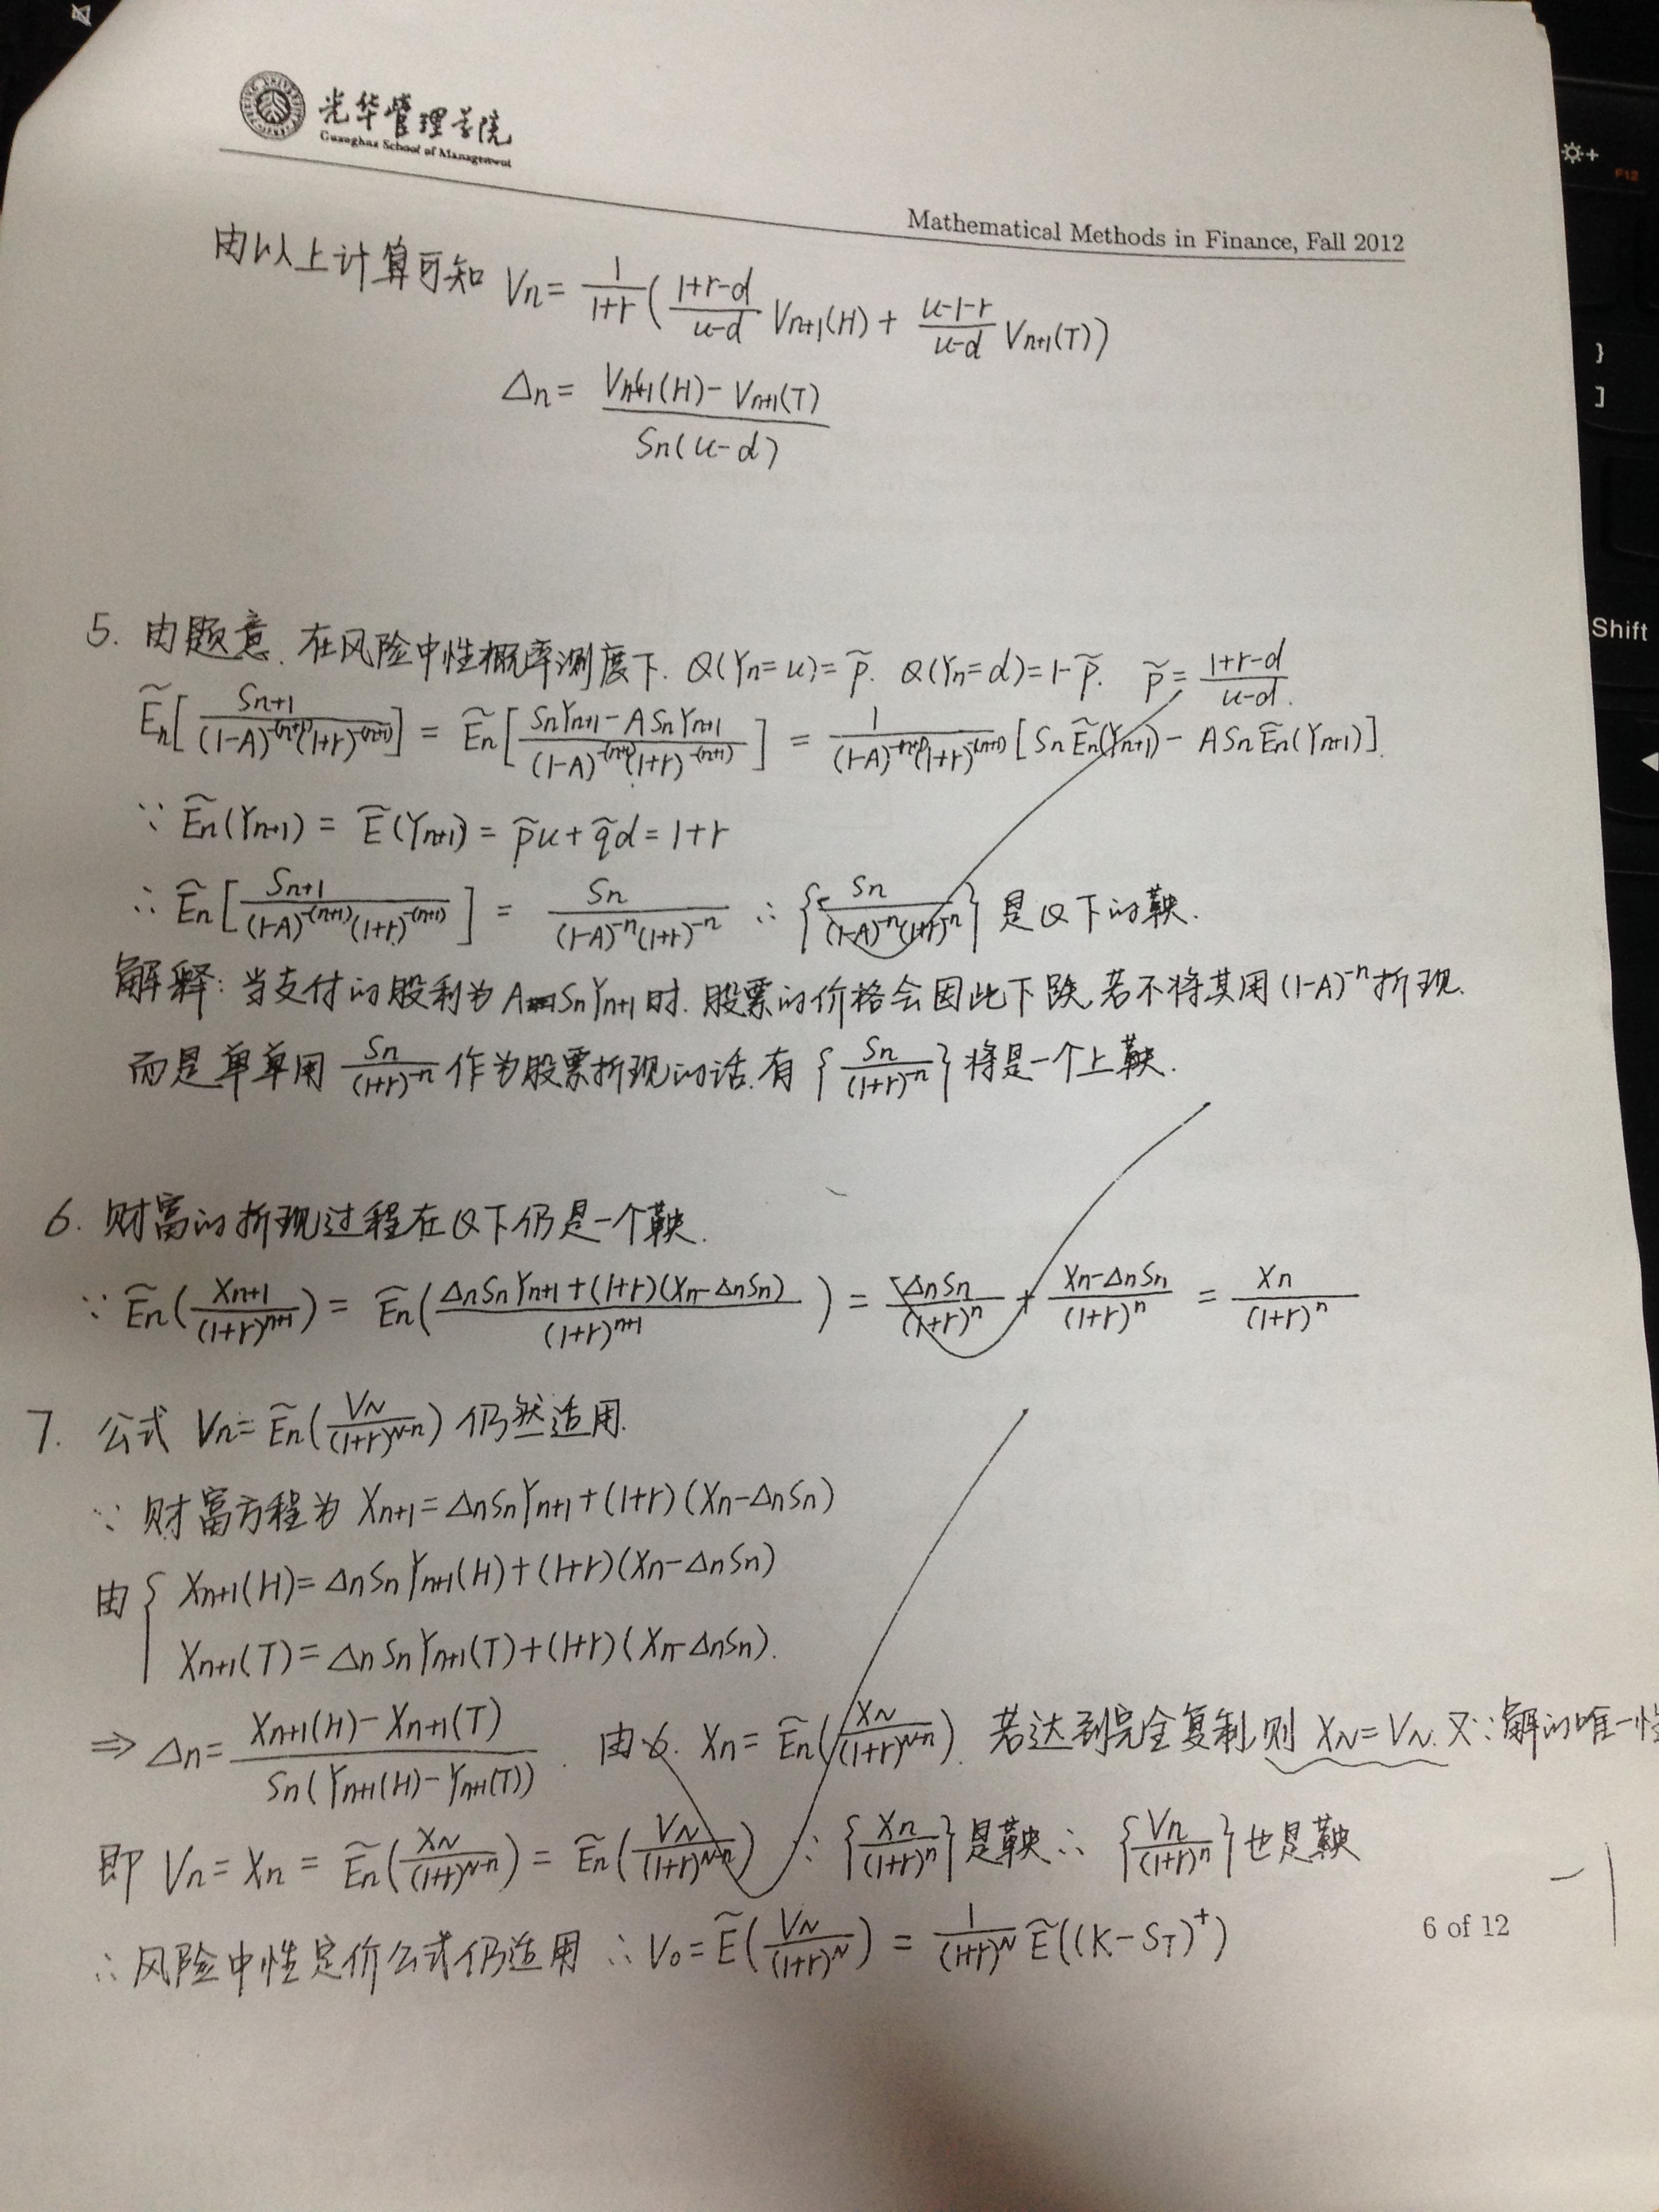 光华管理学院
Guanghua School of Management
Mathematical Methods in Finance, Fall 2012
由以上计算可知 Vn = \frac{1}{1+r}(\frac{1+r-d}{u-d} V_{n+1}(H) + \frac{u-1-r}{u-d} V_{n+1}(T))
Δn = \frac{V_{n+1}(H) - V_{n+1}(T)}{Sn(u-d)}
5. 由题意, 在风险中性概率测度下. Q(Yn=u)=\tilde{p}. Q(Yn=d)=1-\tilde{p}. \tilde{p}=\frac{1+r-d}{u-d}.
\tilde{E}_n[\frac{S_{n+1}}{(1-A)^{-(n+1)}(1+r)^{-(n+1)}}] = \tilde{E}_n[\frac{SnY_{n+1} - ASnY_{n+1}}{(1-A)^{-(n+1)}(1+r)^{-(n+1)}}] = \frac{1}{(1-A)^{-(n+1)}(1+r)^{-(n+1)}}[Sn\tilde{E}_n(Y_{n+1}) - ASn\tilde{E}_n(Y_{n+1})].
∵ \tilde{E}_n(Y_{n+1}) = \tilde{E}(Y_{n+1}) = \tilde{p}u + \tilde{q}d = 1+r
∴ \tilde{E}_n[\frac{S_{n+1}}{(1-A)^{-(n+1)}(1+r)^{-(n+1)}}] = \frac{Sn}{(1-A)^{-n}(1+r)^{-n}} ∴ {\frac{Sn}{(1-A)^{-n}(1+r)^{-n}}} 是Q下的鞅.
解释: 当支付的股利为 ASnY_{n+1}时. 股票的价格会因此下跌, 若不将其用(1-A)^{-n}折现.
而是单单用 \frac{Sn}{(1+r)^{-n}} 作为股票折现的话. 有 {\frac{Sn}{(1+r)^{-n}}} 将是一个上鞅.
6. 财富的折现过程在Q下仍是一个鞅.
∵ \tilde{E}_n(\frac{X_{n+1}}{(1+r)^{n+1}}) = \tilde{E}_n(\frac{ΔnSnY_{n+1} + (1+r)(Xn-ΔnSn)}{(1+r)^{n+1}}) = \frac{ΔnSn}{(1+r)^n} + \frac{Xn-ΔnSn}{(1+r)^n} = \frac{Xn}{(1+r)^n}
7. 公式 Vn = \tilde{E}_n(\frac{V_N}{(1+r)^{N-n}}) 仍然适用.
∵ 财富方程为 X_{n+1} = ΔnSnY_{n+1} + (1+r)(Xn-ΔnSn)
由 { X_{n+1}(H) = ΔnSnY_{n+1}(H) + (1+r)(Xn-ΔnSn)
X_{n+1}(T) = ΔnSnY_{n+1}(T) + (1+r)(Xn-ΔnSn).
⇒ Δn = \frac{X_{n+1}(H) - X_{n+1}(T)}{Sn(Y_{n+1}(H) - Y_{n+1}(T))}. 由6. Xn = \tilde{E}_n(\frac{X_N}{(1+r)^{N-n}}). 若达到完全复制, 则 X_N = V_N. 又∵解的唯一性
即 Vn = Xn = \tilde{E}_n(\frac{X_N}{(1+r)^{N-n}}) = \tilde{E}_n(\frac{V_N}{(1+r)^{N-n}}) ∵ {\frac{Xn}{(1+r)^n}} 是鞅 ∴ {\frac{Vn}{(1+r)^n}} 也是鞅
∴ 风险中性定价公式仍适用 ∴ V_0 = \tilde{E}(\frac{V_N}{(1+r)^N}) = \frac{1}{(1+r)^N}\tilde{E}((K-S_T)^+)
6 of 12
F12
}
]
Shift